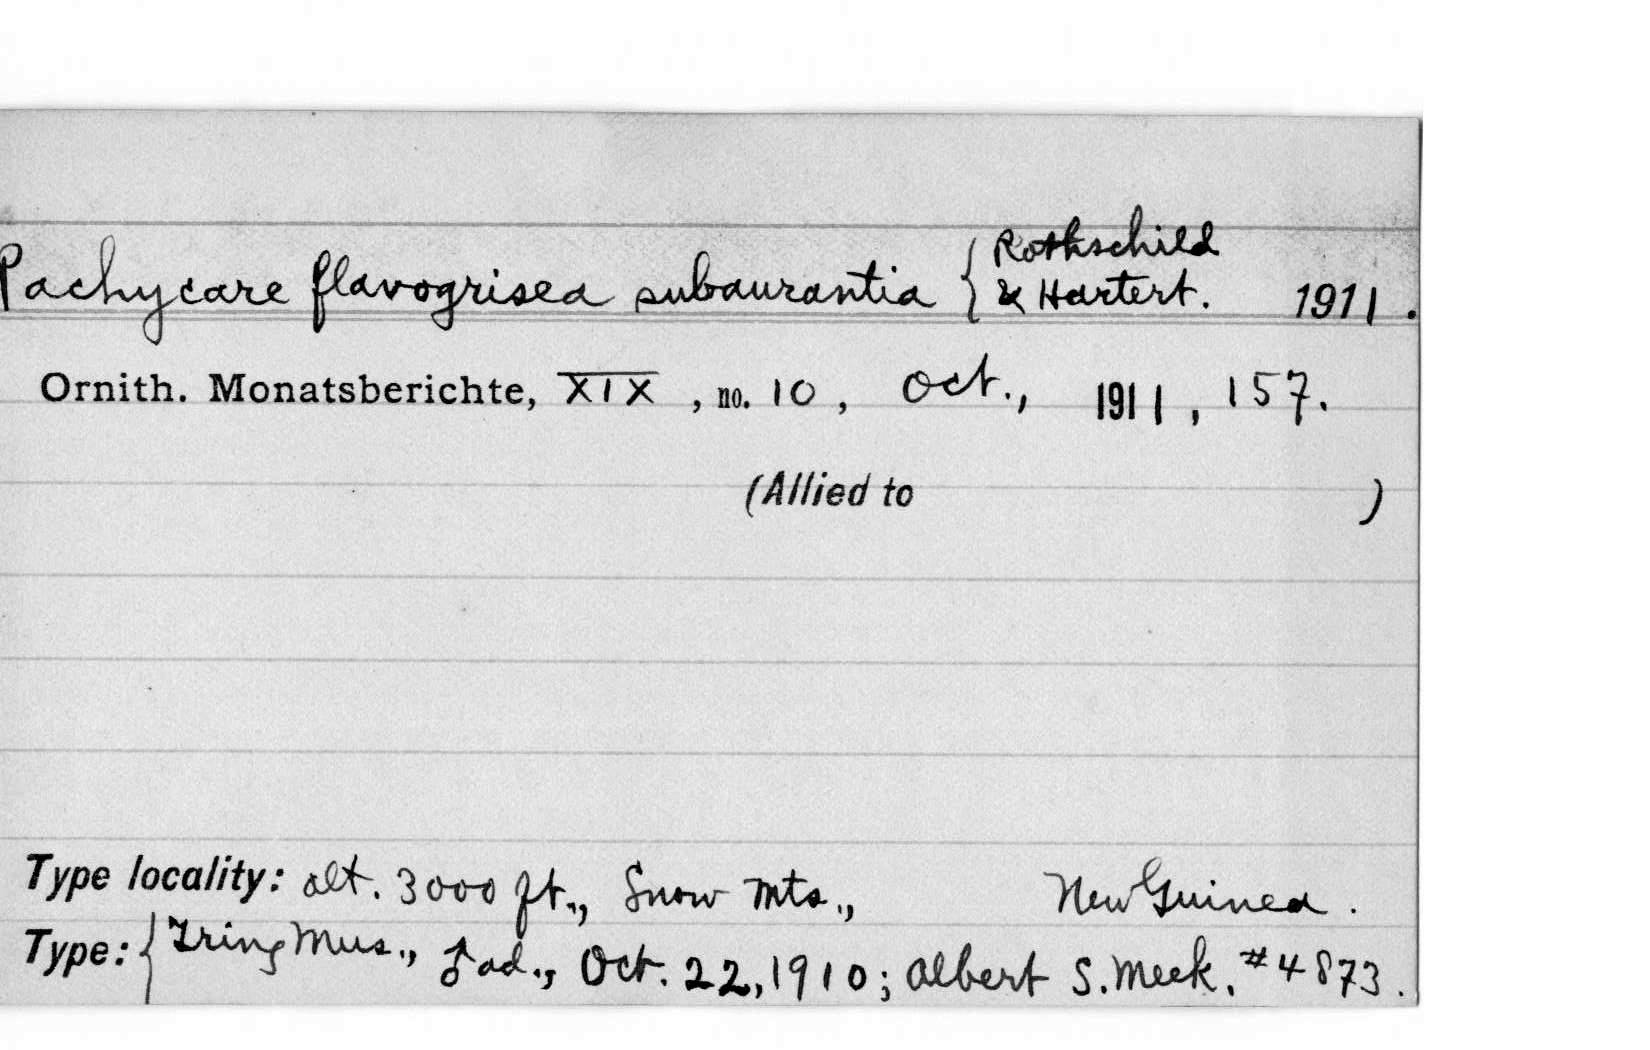 Pachycare flavogrisea subaurantia { Rothschild & Hartert. 1911.
Ornith. Monatsberichte, XIX, no. 10, Oct., 1911, 157.
(Allied to )
Type locality: alt. 3000 ft., Snow Mts., New Guinea.
Type: { Tring Mus., ♂ ad., Oct. 22, 1910; Albert S. Meek. #4873.